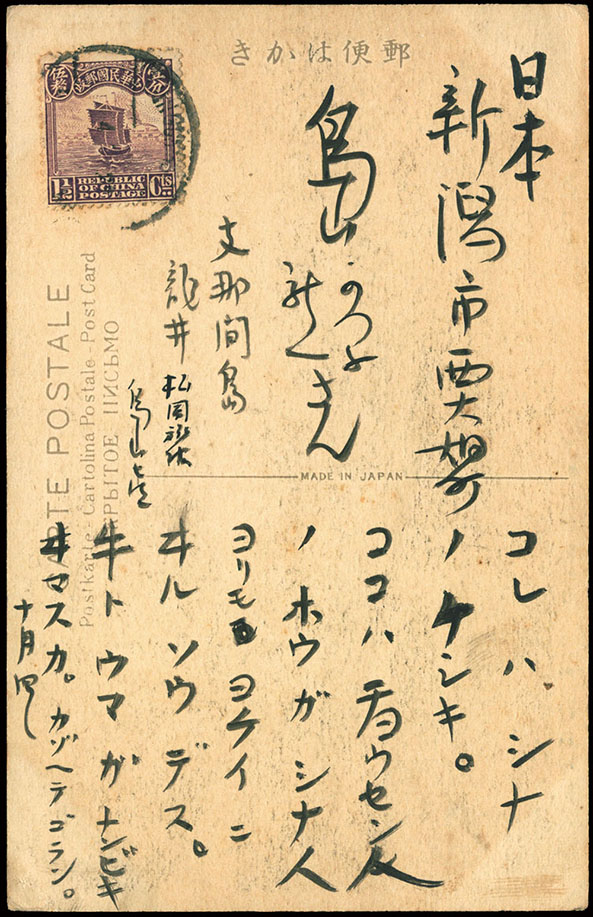 郵便はかき
中華民國郵政
1½ REPUBLIC OF CHINA POSTAGE Cts
日本
新潟市西大畑町
鳥山
かつよ
さん
支那間島
龍井 松岡
鳥山
CARTE POSTALE
Postkarte - Cartolina Postale - Post Card
ОТКРЫТОЕ ПИСЬМО
MADE IN JAPAN
コレハ、シナ
ノケシキ。
ココハ チョウセン人
ノ ホウガ シナ人
ヨリモ ヨケイニ
ヰル ソウ デス。
牛ト ウマ ガ ナンビキ
ヰマスカ。カゾヘテゴラン。
十月四日